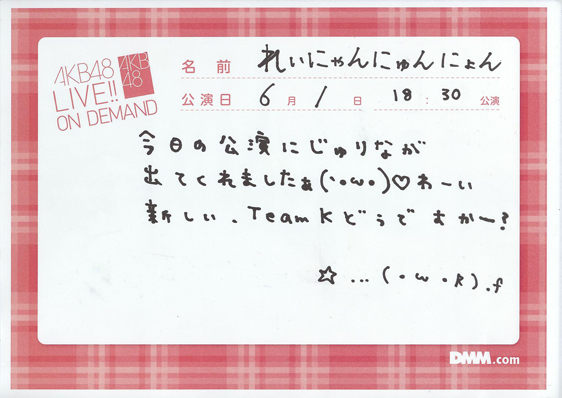 AKB48
LIVE!!
ON DEMAND
AKB
48
名前 れいにゃんにゅんにょん
公演日 6月1日 18:30公演
今日の公演にじゅりなが
出てくれましたぁ(・ω・)♡わーい
新しい、TeamKどうですかー?
☆...(・ω・R).f
DMM.com